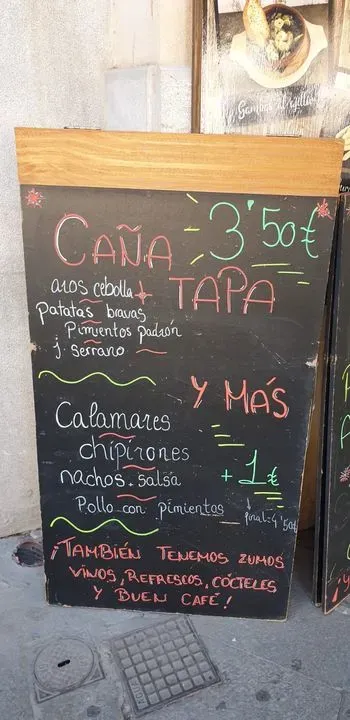 Gambas al ajillo
CAÑA 3'50€
+ TAPA
aros cebolla
patatas bravas
Pimientos padrón
j. serrano
Y MÁS
Calamares
chipirones
nachos. salsa
+ 1€
Pollo con pimientos
final = 4'50€
¡TAMBIÉN TENEMOS ZUMOS
VINOS, REFRESCOS, CÓCTELES
Y BUEN CAFÉ!